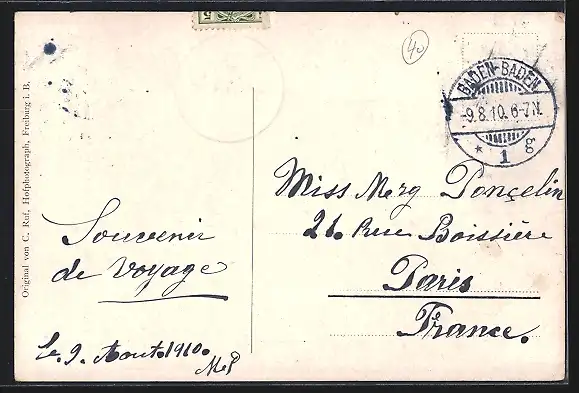 Original von C. Ruf, Hofphotograph, Freiburg i. B.
5
40
BADEN-BADEN
-9.8.10. 6-7N.
* 1 g
Miss Merg Ponçelin
26. Rue Boissière
Paris
France.
Souvenir
de voyage
le. 9. Aout. 1910.
M.P